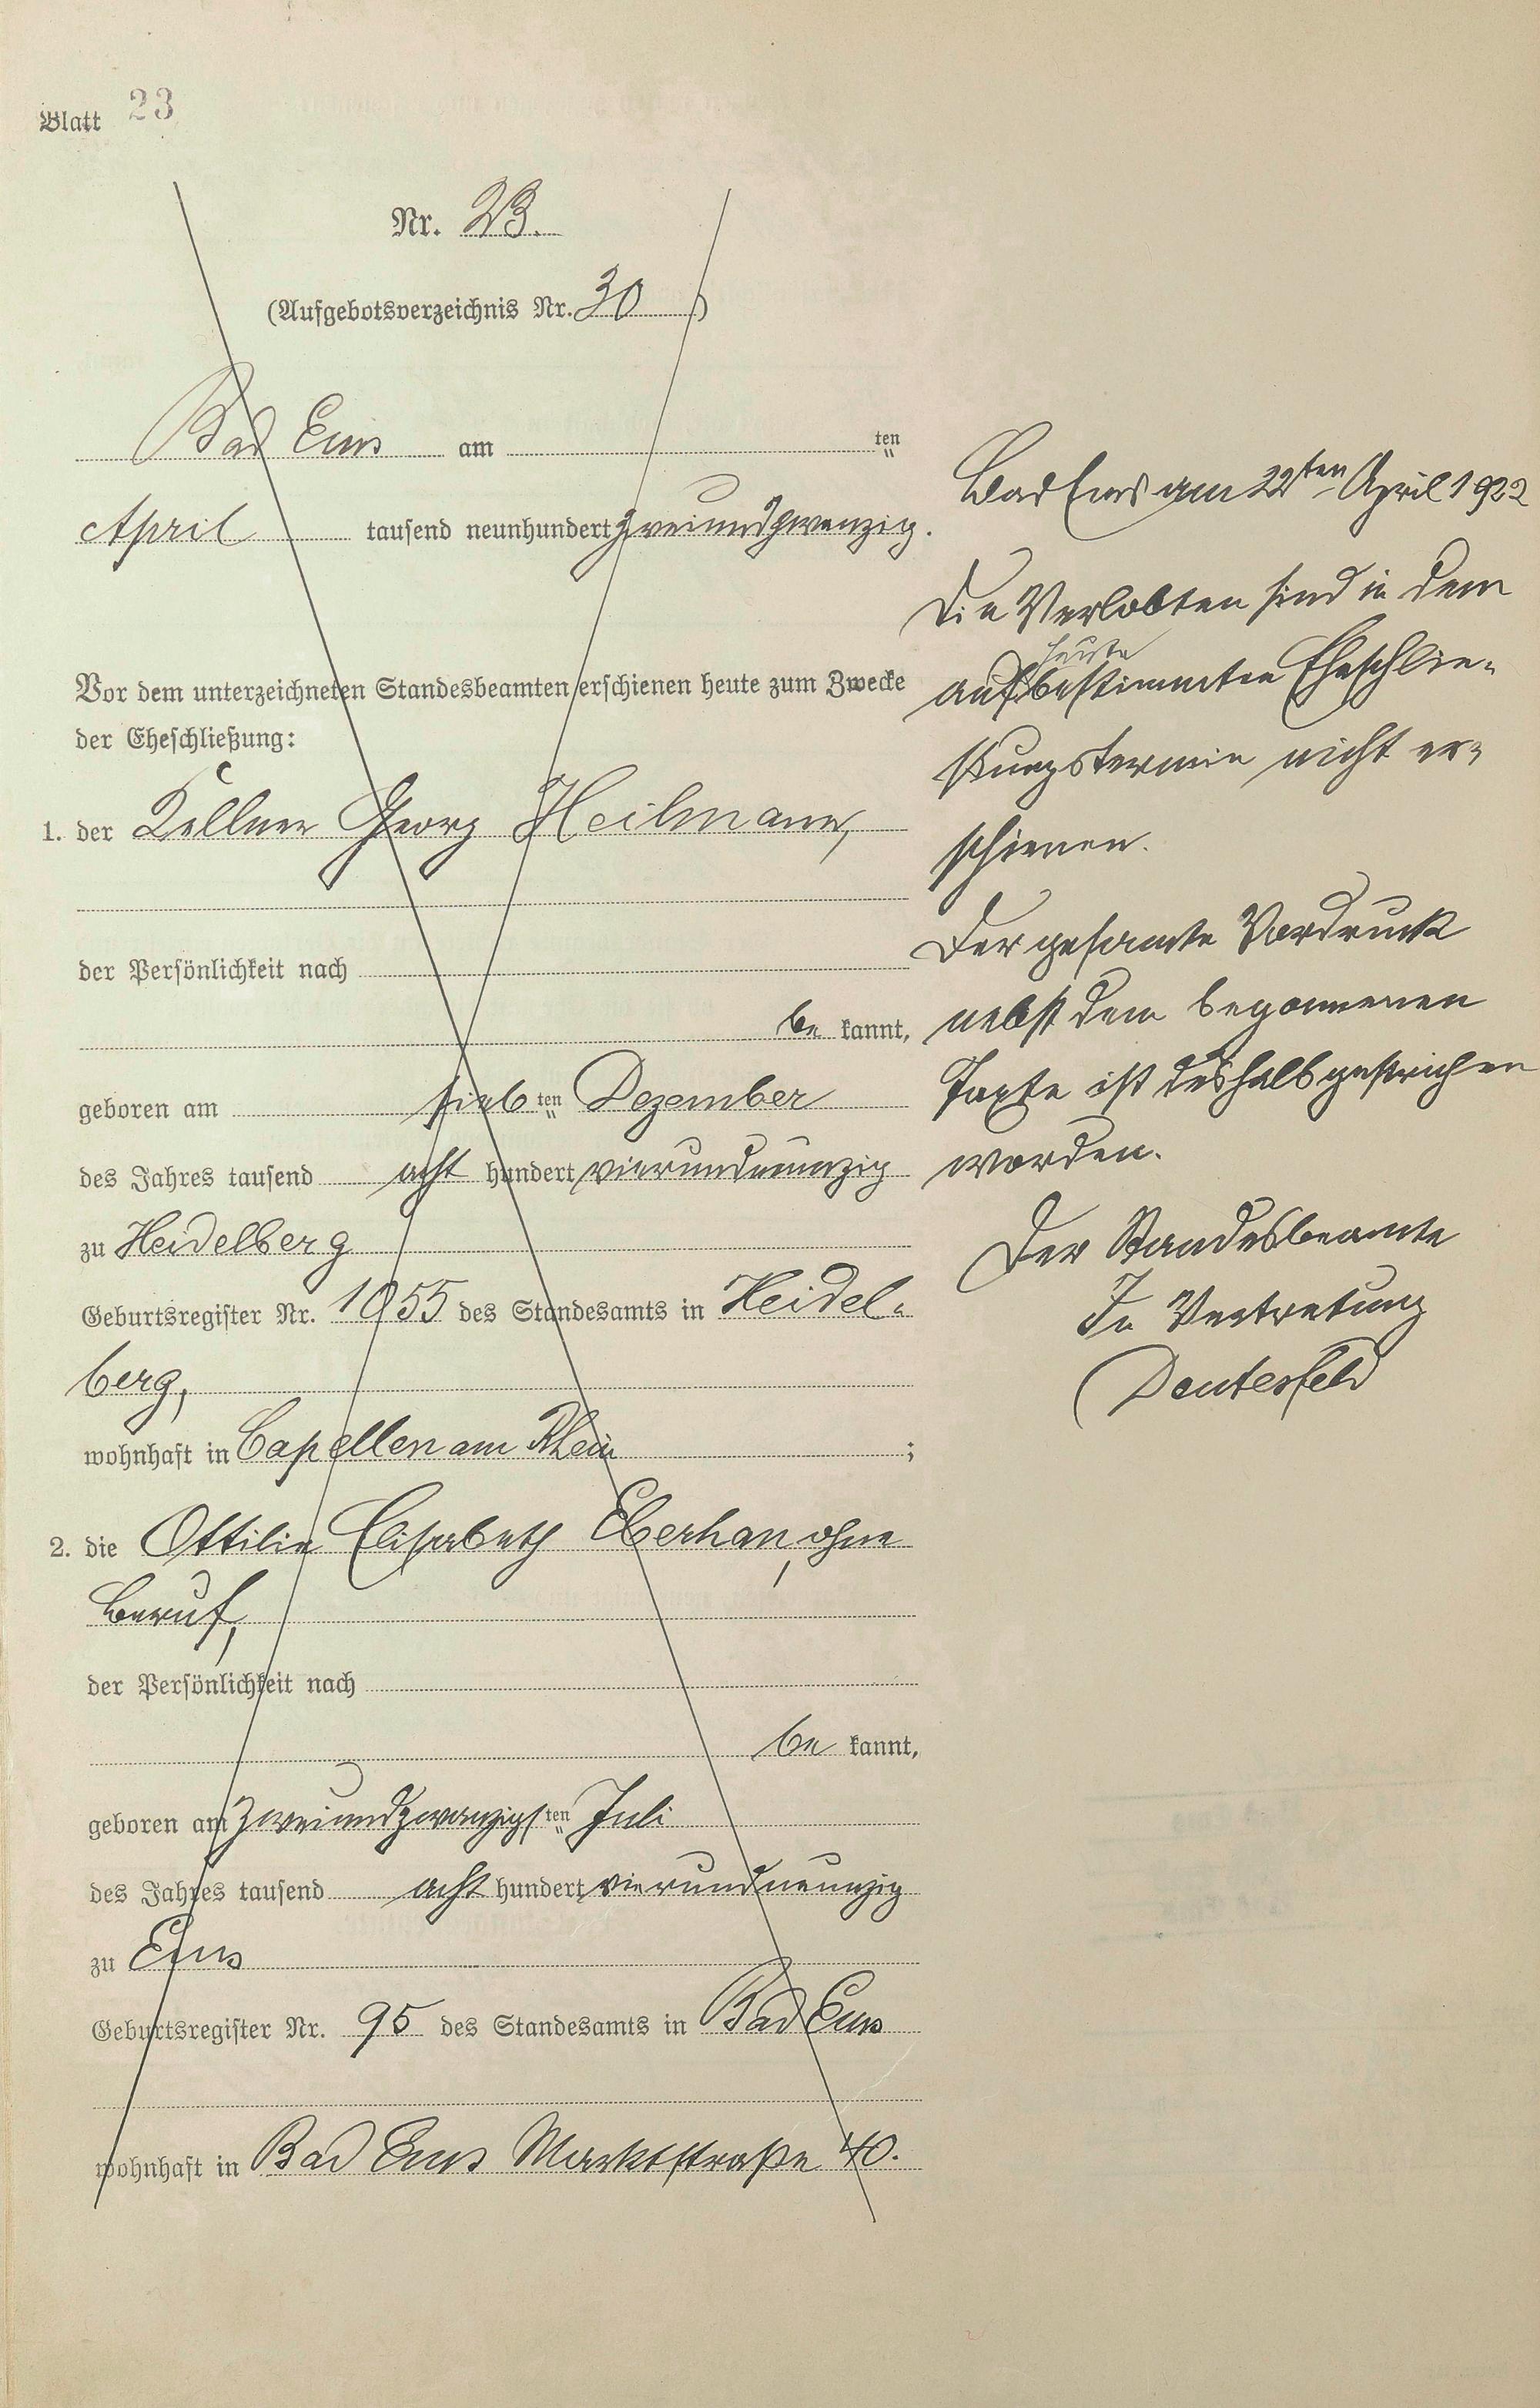 Blatt 23
Nr. 23.
(Aufgebotsverzeichnis Nr. 30)
Bad Ems am ten
April tausend neunhundert zweiundzwanzig.
Vor dem unterzeichneten Standesbeamten erschienen heute zum Zwecke
der Eheschließung:
1. der Kellner Georg Heilmann,
der Persönlichkeit nach
be kannt,
geboren am sieb ten Dezember
des Jahres tausend acht hundert vierundneunzig
zu Heidelberg
Geburtsregister Nr. 1055 des Standesamts in Heidel-
berg,
wohnhaft in Capellen am Rhein ;
2. die Ottilie Elisabeth Eberhan, ohne
Beruf,
der Persönlichkeit nach
be kannt,
geboren am zweiundzwanzigs ten Juli
des Jahres tausend acht hundert vierundneunzig
zu Ems
Geburtsregister Nr. 95 des Standesamts in Bad Ems
wohnhaft in Bad Ems Marktstraße 40.
Bad Ems am 22ten April 1922
Die Verlobten sind in dem
auf heute bestimmten Eheschlie-
ßungstermin nicht er-
schienen.
Der gesamte Vordruck
nebst dem begonnenen
Texte ist deshalb gestrichen
worden.
Der Standesbeamte
In Vertretung